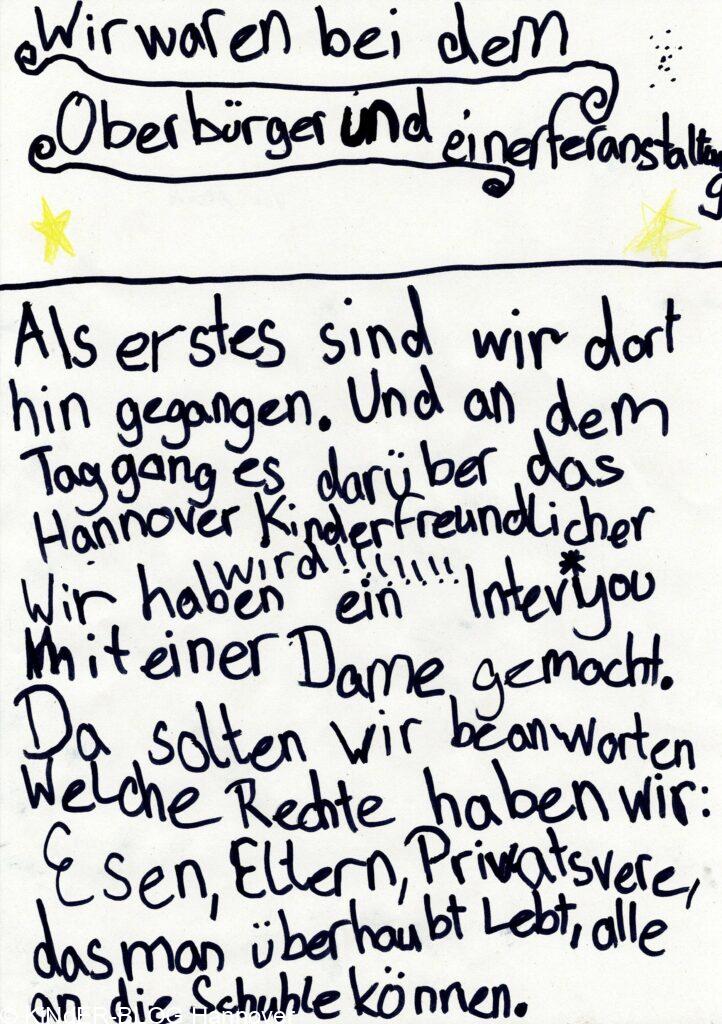 Wir waren bei dem
Oberbürger und einer feranstaltung
Als erstes sind wir dort
hin gegangen. Und an dem
Tag gang es darüber das
Hannover Kinderfreundlicher
wird!!!!!!!
Wir haben ein Interviyou
mit einer Dame gemacht.
Da solten wir beanworten
Welche Rechte haben wir:
Esen, Eltern, Privatsvere,
das man überhaubt Lebt, alle
an die Schuhle können.
© KINDER-BLOG Hannover